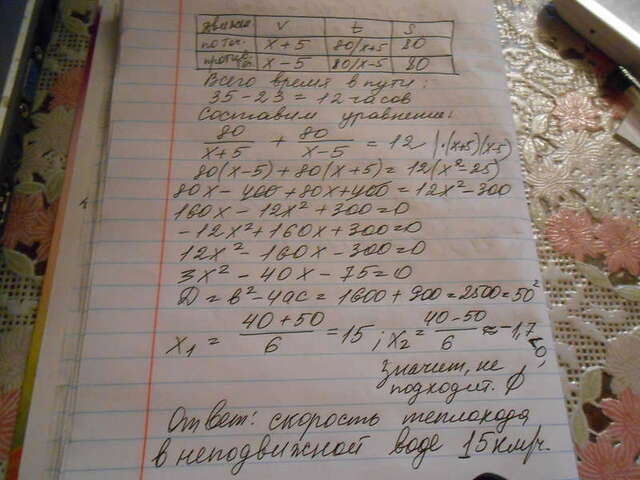 движен. v t s
по теч. x+5 80/x+5 80
против теч. x-5 80/x-5 80
Всего время в пути:
35-23=12 часов
Составим уравнение:
80/x+5 + 80/x-5 = 12 |·(x+5)(x-5)
80(x-5)+80(x+5)=12(x²-25)
80x-400+80x+400=12x²-300
160x-12x²+300=0
-12x²+160x+300=0
12x²-160x-300=0
3x²-40x-75=0
D=в²-4ac=1600+900=2500=50²
x₁= 40+50/6 =15; x₂= 40-50/6 ≈-1,7
<0,
значит, не
подходит. ∅
Ответ: скорость теплохода
в неподвижной воде 15км/ч.